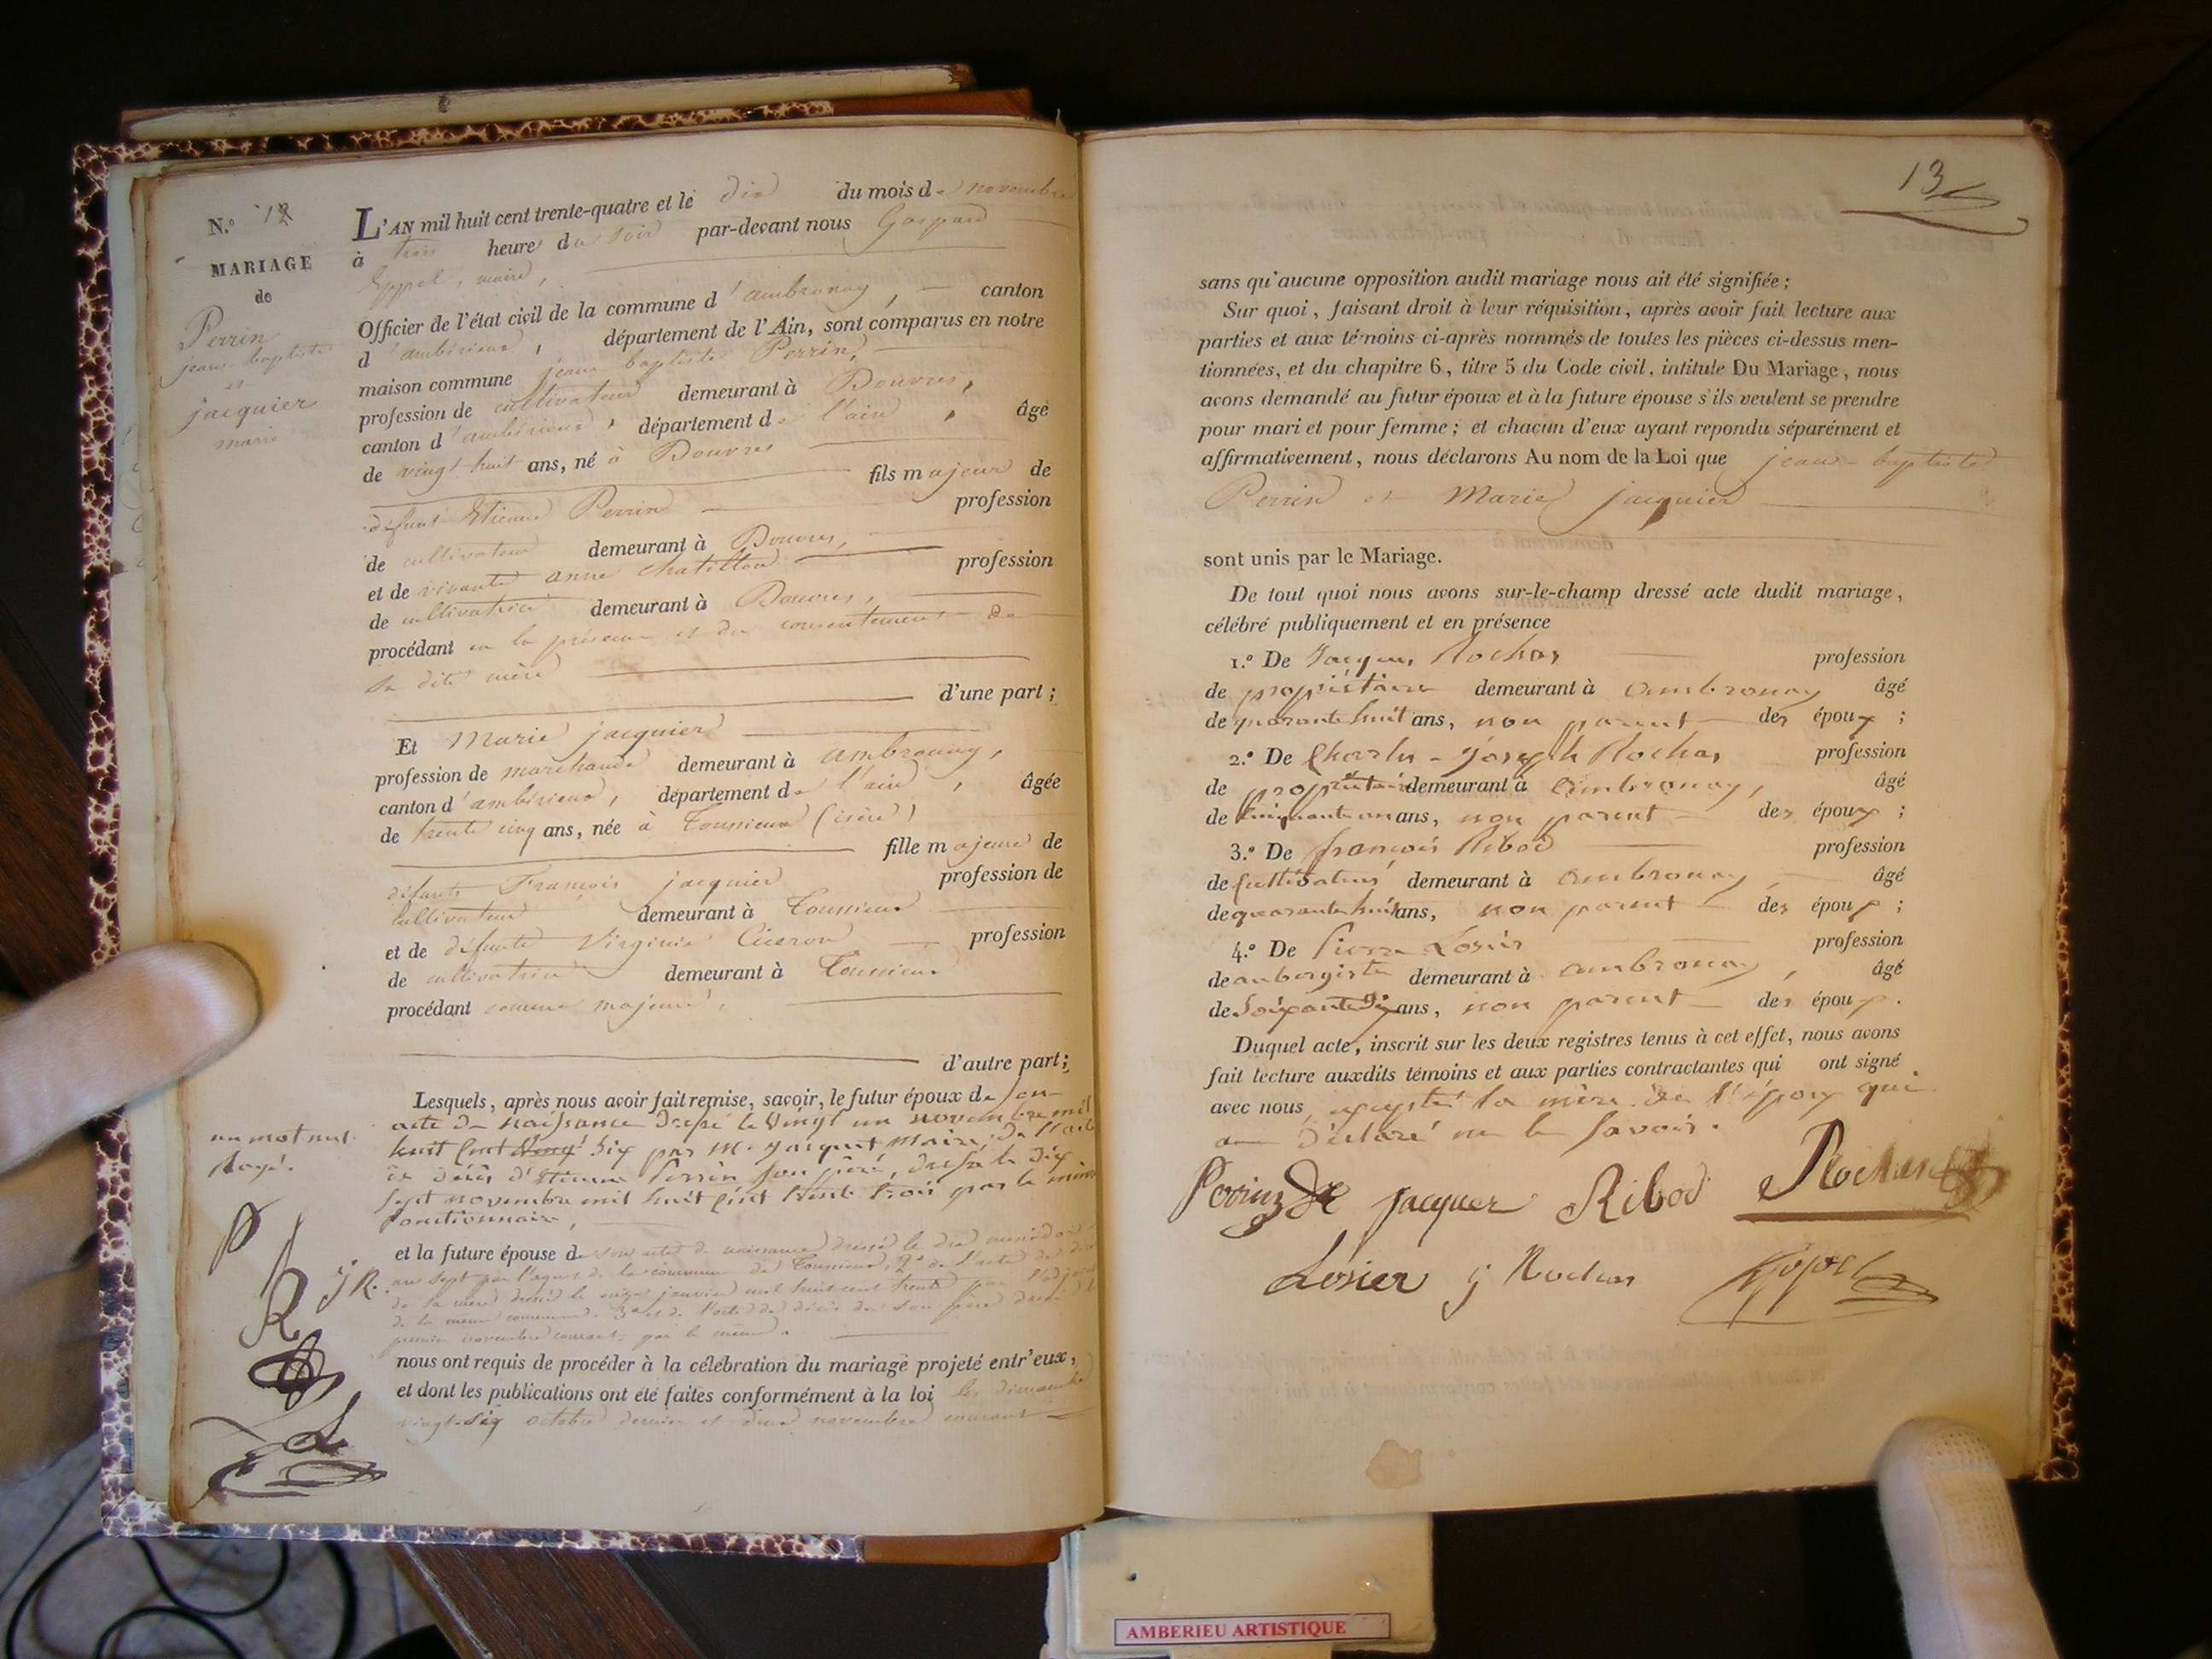 N.º 12
MARIAGE
de
Perrin
jean baptiste
et
jacquier
marie
L'AN mil huit cent trente-quatre et le dix du mois de novembre
à trois heures du soir par-devant nous Gaspard
maire,
Officier de l'état civil de la commune d'ambronay, canton
d'ambérieux, département de l'Ain, sont comparus en notre
maison commune jean baptiste Perrin,
profession de cultivateur demeurant à Douvres,
canton d'ambérieux, département de l'ain, âgé
de vingt huit ans, né à Douvres
fils majeur de
défunt Etienne Perrin profession
de cultivateur demeurant à Douvres,
et de vivante anne chatillon profession
de cultivatrice demeurant à Douvres,
procédant en la présence et du consentement de
sa dite mère
d'une part;
Et Marie jacquier
profession de marchande demeurant à ambronay,
canton d'ambérieux, département de l'ain, âgée
de trente cinq ans, née à Toussieux (isère)
fille majeure de
défunts François jacquier profession de
cultivateur demeurant à Toussieux
et de défunte Virginie Ciceron profession
de cultivatrice demeurant à Toussieux
procédant comme majeure,
d'autre part;
Lesquels, après nous avoir fait remise, savoir, le futur époux de son
acte de naissance dressé le vingt un novembre mil
huit cent vingt six par M. jacquet maire, de l'acte
de décès d'Etienne Perrin son père, dressé le dix
sept novembre mil huit cent trente trois par le même
fonctionnaire,
un mot nul
Rayé.
P
R
J R.
et la future épouse de son acte de naissance dressé le dix messidor
an sept par l'agent de la commune de Toussieux, 2º de l'acte de décès
de sa mère dressé le seize janvier mil huit cent trente par l'adjoint
de la même commune. 3º et de l'acte de décès de son père dressé le
premier novembre courant, par le même.
nous ont requis de procéder à la célébration du mariage projeté entr'eux,
et dont les publications ont été faites conformément à la loi les dimanche
vingt-six octobre dernier et deux novembre courant
L
13
sans qu'aucune opposition audit mariage nous ait été signifiée;
Sur quoi, faisant droit à leur réquisition, après avoir fait lecture aux
parties et aux témoins ci-après nommés de toutes les pièces ci-dessus men-
tionnées, et du chapitre 6, titre 5 du Code civil, intitule Du Mariage, nous
avons demandé au futur époux et à la future épouse s'ils veulent se prendre
pour mari et pour femme; et chacun d'eux ayant repondu séparément et
affirmativement, nous déclarons Au nom de la Loi que jean-baptiste
Perrin et Marie jacquier
sont unis par le Mariage.
De tout quoi nous avons sur-le-champ dressé acte dudit mariage,
célébré publiquement et en présence
1.º De Jacques Rochas profession
de propriétaire demeurant à ambronay âgé
de quarante huit ans, non parent des époux;
2.º De Charles-Joseph Rochas profession
de propriétaire demeurant à ambronay, âgé
de cinquante un ans, non parent des époux;
3.º De françois Ribod profession
de cultivateur demeurant à ambronay, âgé
de quarante huit ans, non parent des époux;
4.º De Pierre Losier profession
de aubergiste demeurant à ambronay, âgé
de soixante dix ans, non parent des époux.
Duquel acte, inscrit sur les deux registres tenus à cet effet, nous avons
fait lecture auxdits témoins et aux parties contractantes qui ont signé
avec nous, excepté la mère de l'époux qui
a déclaré ne le savoir.
Jacquer Ribod Rochas
Losier J Rochas
AMBERIEU ARTISTIQUE